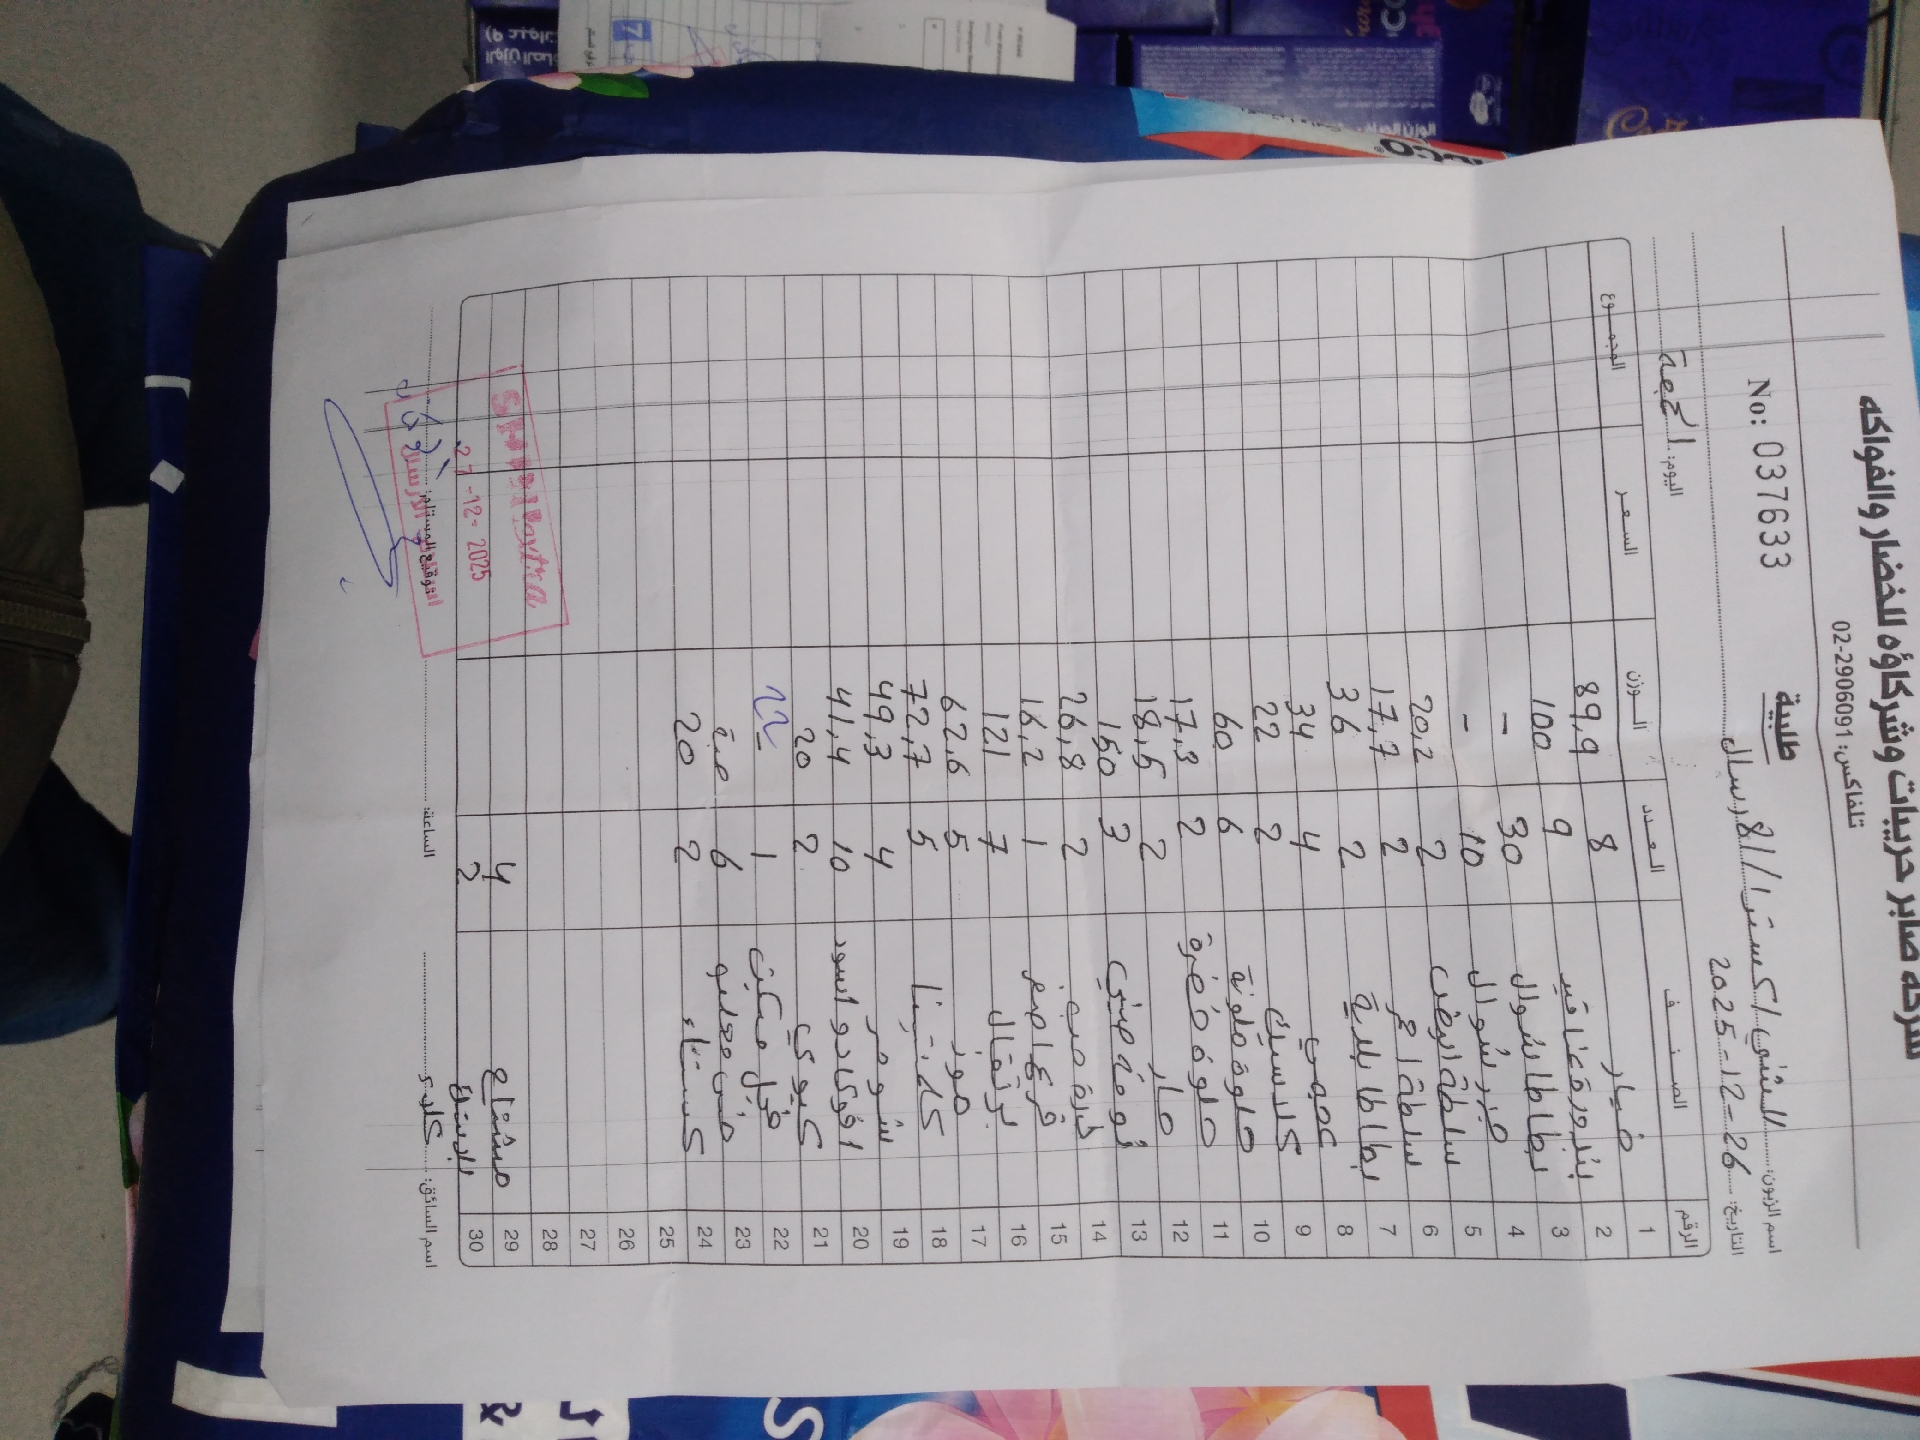 شركة صابر حريبات وشركاؤه للخضار والفواكه
تلفاكس: 02-2906091
طلبية
No: 037633
اسم الزبون: الشني اكسترا / الارسال
التاريخ: 26-12-2025
اليوم: الجمعة
الرقم الصنف العدد الوزن السعر المجموع
1 خيار 8 89,9
2 بندورة عناقيد 9 100
3 بطاطا شوال 30 -
4 جزر شوال 10 -
5 سلطة ابيض 2 20,2
6 سلطة 2 17,7
7 بطاطا بلدية 2 36
8 عجمي 4 34
9 كلاسيك 2 22
10 حلوة ملونة 6 60
11 حلوة خضرة 2 17,3
12 حار 2 18,5
13 ثومة صيني 3 150
14 فرع حب 2 26,8
15 قرع اصفر 1 16,2
16 برتقال 7 121
17 موز 5 62,6
18 كلمنتينا 5 72,7
19 شومر 4 49,3
20 افوكادو اسود 10 41,4
21 كيوي 2 20
22 فجل 1 22
23 خس 6 حبة
24 كستناء 2 20
25
26
27
28
29 مشتاح 4
30 بلاستيك 2
اسم السائق:
الساعة:
التوقيع المستلم:
27-12-2025
الارسال
Cadbury
7